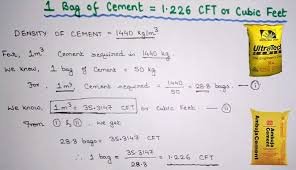 1 Bag of Cement = 1.226 CFT or Cubic Feet
DENSITY OF CEMENT = 1440 kg/m³
For, 1m³ Cement required is 1440 kg.
We know, 1 bag of Cement = 50 kg
For, 1m³ Cement required = 1440/50 = 28.8 bags. - I
We know, 1m³ = 35.3147 CFT or Cubic Feet - II
From I & II .. we get
28.8 bags = 35.3147 CFT
∴ 1 bag = 35.3147/28.8 = 1.226 CFT
UltraTech
CEMENT
Ambuja Cement